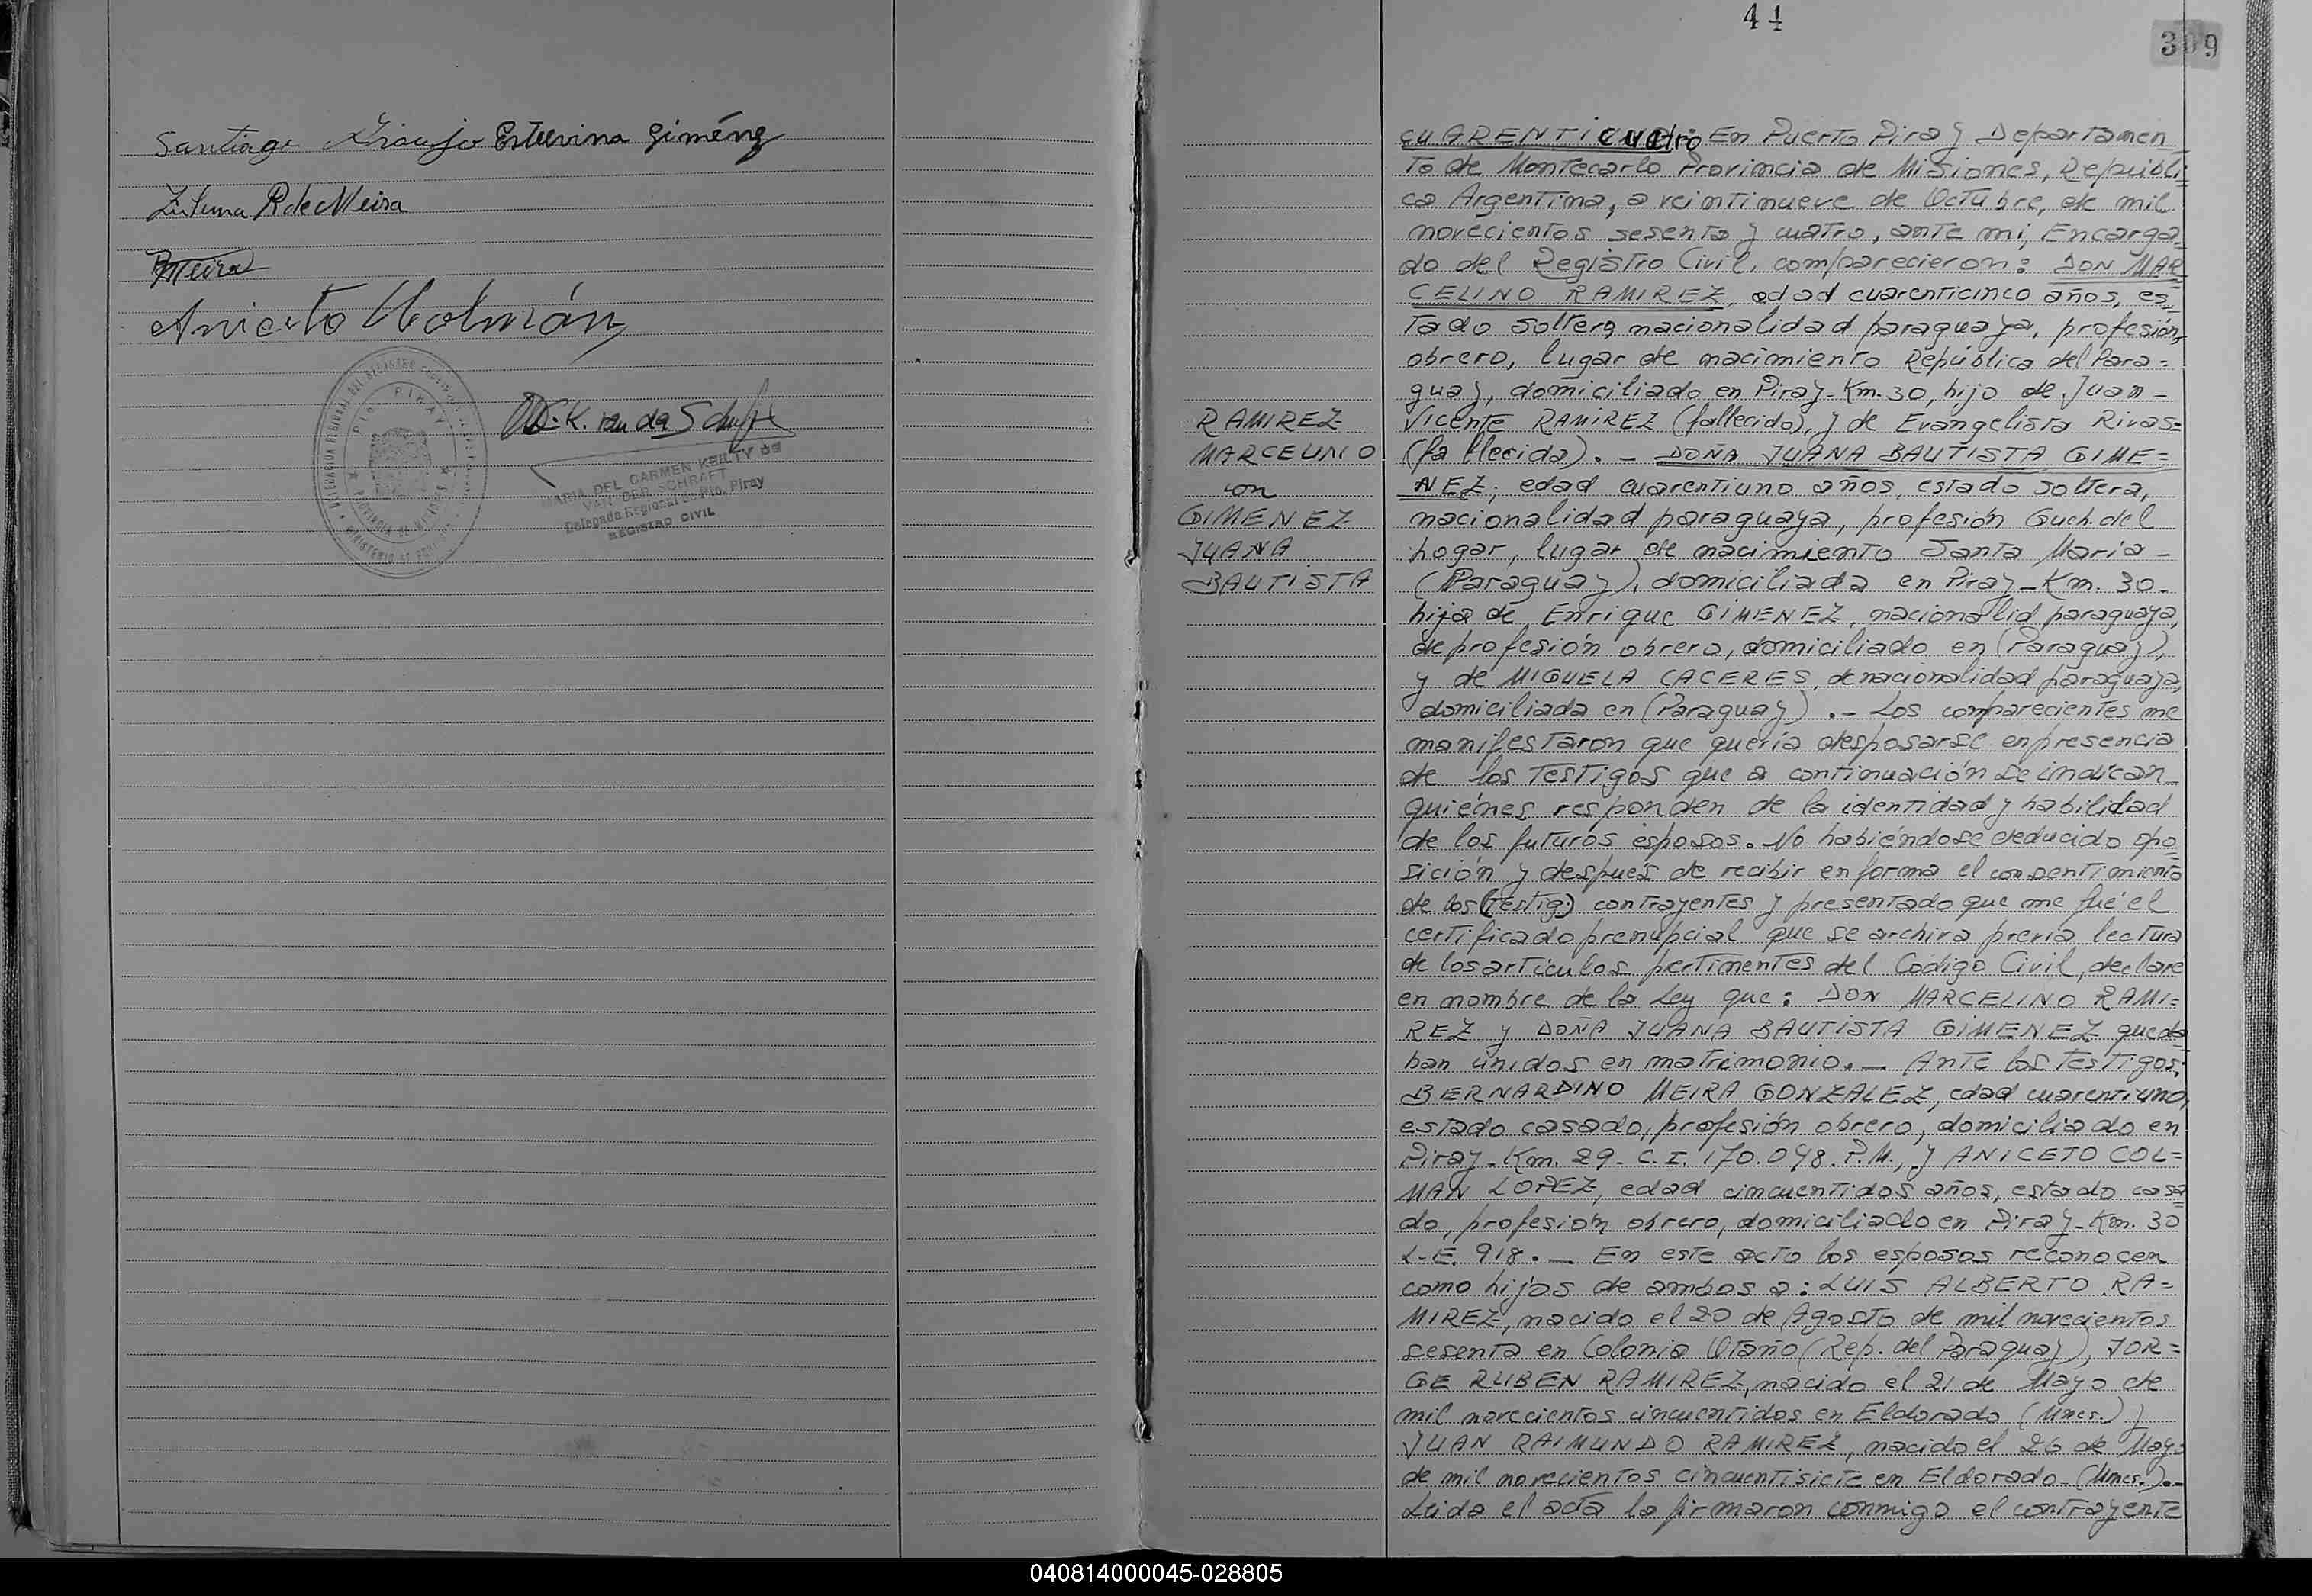 Santiago Araujo Estervina Giménez
R de Meira
Meira
Aniceto Colmán
PTO. PIRAY
PROVINCIA DE MISIONES
M.C.K. van der Schraft
MARIA DEL CARMEN KEILTY DE
VAN DER SCHRAFT
Delegada Regional de Pto. Piray
REGISTRO CIVIL
44
309
RAMIREZ
MARCELINO
con
GIMENEZ
JUANA
BAUTISTA
CUARENTICUATRO En Puerto Piray Departamen
to de Montecarlo Provincia de Misiones, Repúbli=
ca Argentina, a veintinueve de Octubre, de mil
novecientos sesenta y cuatro, ante mí, Encarga=
do del Registro Civil, comparecieron: DON MAR
CELINO RAMIREZ, edad cuarenticinco años, es=
tado soltero, nacionalidad paraguaya, profesión,
obrero, lugar de nacimiento República del Para=
guay, domiciliado en Piray-Km.30, hijo de Juan-
Vicente RAMIREZ (fallecido), y de Evangelista Rivas=
(fallecida).- DOÑA JUANA BAUTISTA GIME=
NEZ, edad cuarentiuno años, estado soltera,
nacionalidad paraguaya, profesión Queh. del
hogar, lugar de nacimiento Santa María-
(Paraguay), domiciliada en Piray-Km. 30-
hija de Enrique GIMENEZ, nacionalid paraguaya,
de profesión obrero, domiciliado en (Paraguay),
y de MIGUELA CACERES, de nacionalidad paraguaya,
domiciliada en (Paraguay).- Los comparecientes me
manifestaron que quería desposarse en presencia
de los testigos que a continuación se indican-
quiénes responden de la identidad y habilidad
de los futuros esposos. No habiéndose deducido opo=
sición y despues de recibir en forma el consentimiento
de los (testig.) contrayentes y presentado que me fué el
certificado prenupcial que se archiva previa lectura
de los artículos pertinentes del Código Civil, declaré
en nombre de la Ley que: DON MARCELINO RAMI=
REZ y DOÑA JUANA BAUTISTA GIMENEZ queda=
ban unidos en matrimonio.- Ante los testigos:
BERNARDINO MEIRA GONZALEZ, edad cuarentiuno,
estado casado, profesión obrero, domiciliado en
Piray-Km. 29- C.I. 170.098.P.M., y ANICETO COL=
MAN LOPEZ, edad cincuentidos años, estado casa=
do, profesión obrero, domiciliado en Piray-Km. 30
L-E. 918.- En este acto los esposos reconocen
como hijos de ambos a: LUIS ALBERTO RA=
MIREZ, nacido el 20 de Agosto de mil novecientos
sesenta en Colonia Otaño (Rep. del Paraguay), JOR=
GE RUBEN RAMIREZ, nacido el 21 de Mayo de
mil novecientos cincuentidos en Eldorado (Mnes.) y
JUAN RAIMUNDO RAMIREZ, nacido el 26 de Mayo
de mil novecientos cincuentisiete en Eldorado-(Mnes.).-
Leida el acta la firmaron conmigo el contrayente
040814000045-028805